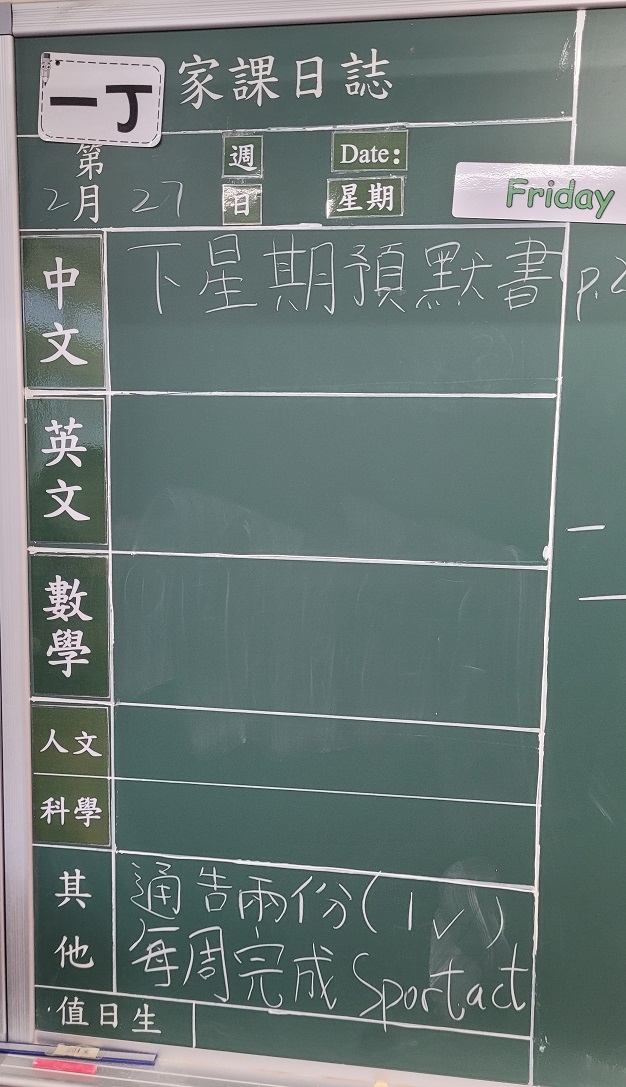 一丁 家課日誌
第 週 Date:
2月 27 日 星期 Friday
中文 下星期預默書 p.2
英文
數學
人文
科學
其他 通告兩份(1✓)
每周完成 Sportact
值日生